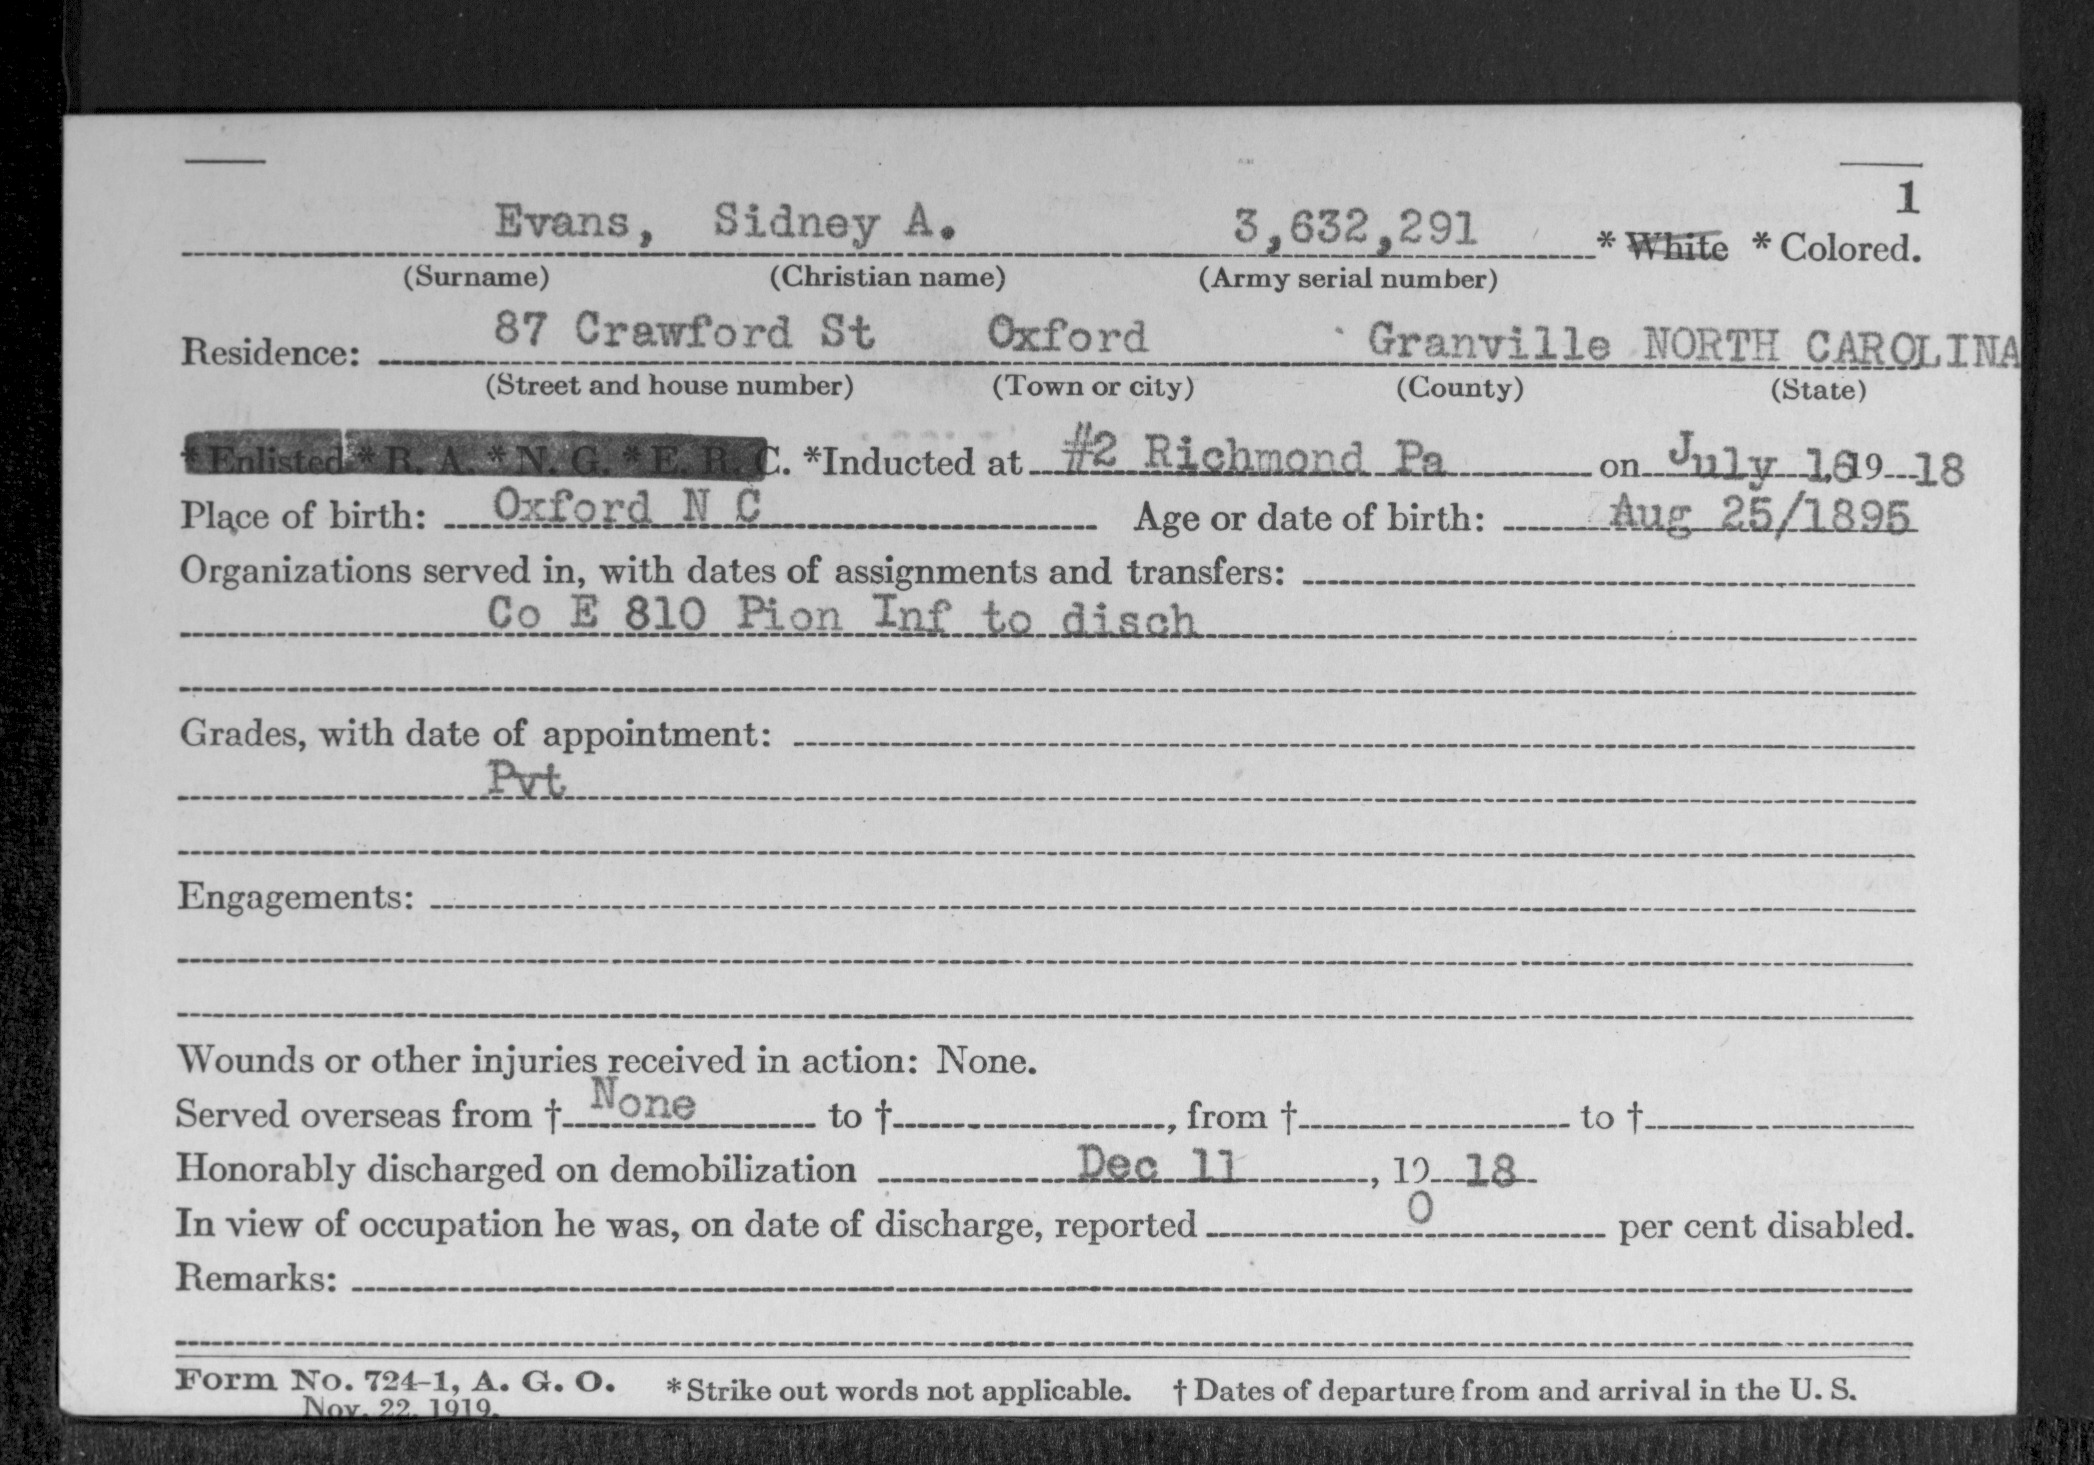 1
Evans, Sidney A. 3,632,291 * White * Colored.
(Surname) (Christian name) (Army serial number)
Residence: 87 Crawford St Oxford Granville NORTH CAROLINA
(Street and house number) (Town or city) (County) (State)
* Enlisted * R. A. * N. G. * E. R. C. *Inducted at #2 Richmond Pa on July 16, 19 18
Place of birth: Oxford N C Age or date of birth: Aug 25/1895
Organizations served in, with dates of assignments and transfers:
Co E 810 Pion Inf to disch
Grades, with date of appointment:
Pvt
Engagements:
Wounds or other injuries received in action: None.
Served overseas from † None to †, from † to †
Honorably discharged on demobilization Dec 11, 19 18
In view of occupation he was, on date of discharge, reported 0 per cent disabled.
Remarks:
Form No. 724-1, A. G. O. * Strike out words not applicable. † Dates of departure from and arrival in the U. S.
Nov. 22, 1919.